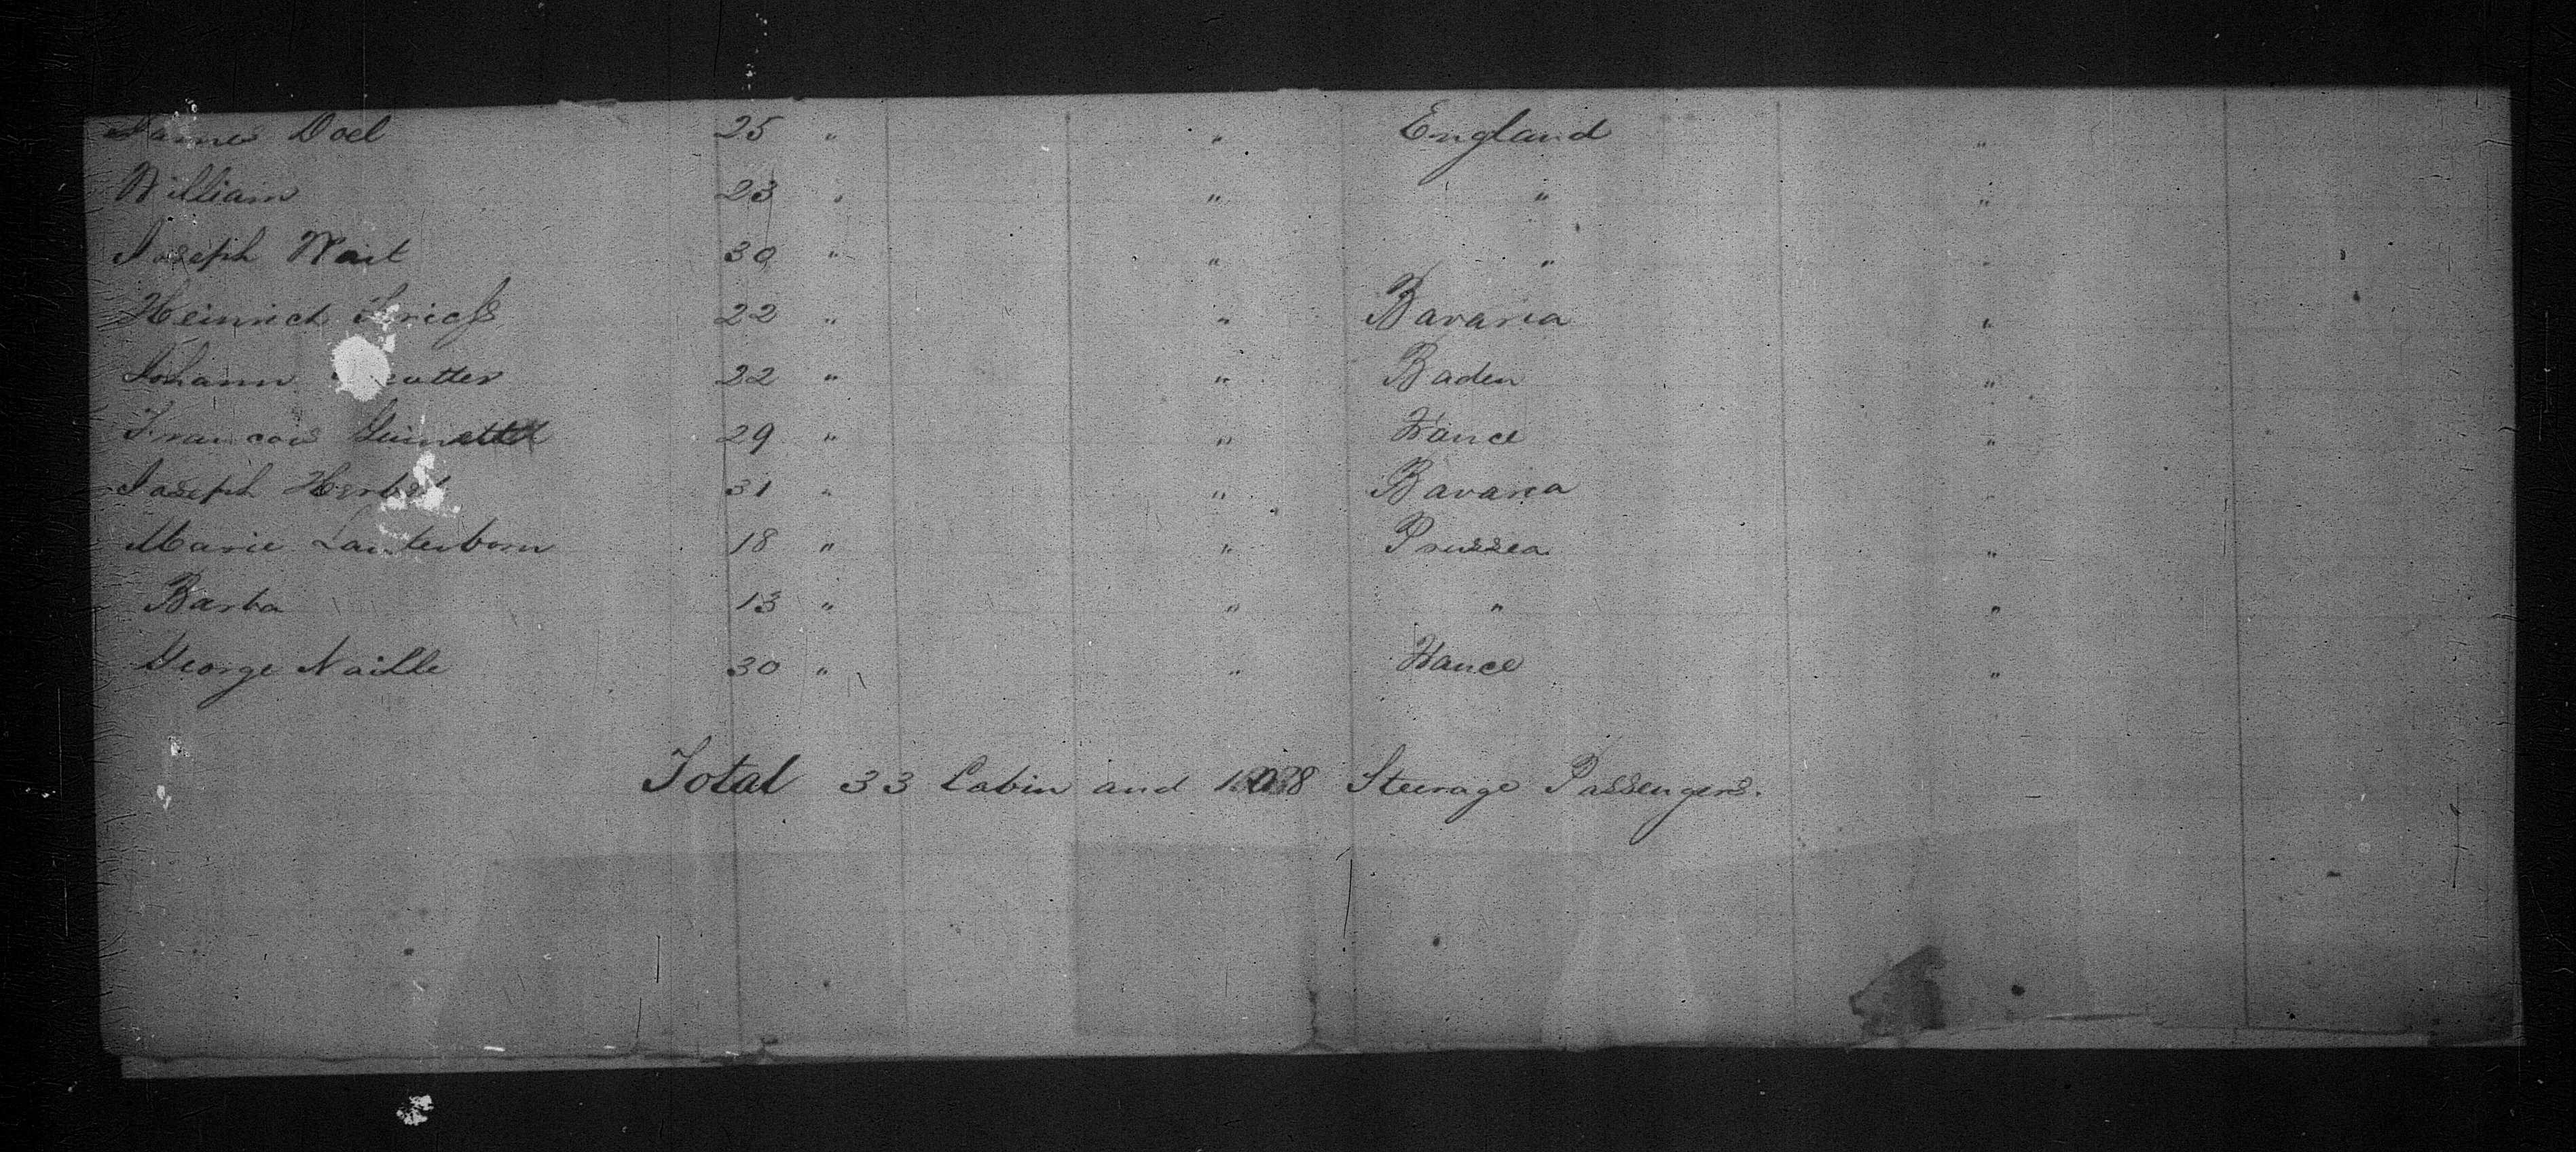 James Doel 25 " " England "
William 23 " " " "
Joseph Wait 30 " " " "
Heinrich 22 " " Bavaria "
Johann 22 " " Baden "
Francois 29 " " France "
Joseph Herbst 31 " " Bavaria "
Marie Lauterborn 18 " " Prussea "
Barba 13 " " " "
George Naille 30 " " France "
Total 33 Cabin and Steerage Passengers.